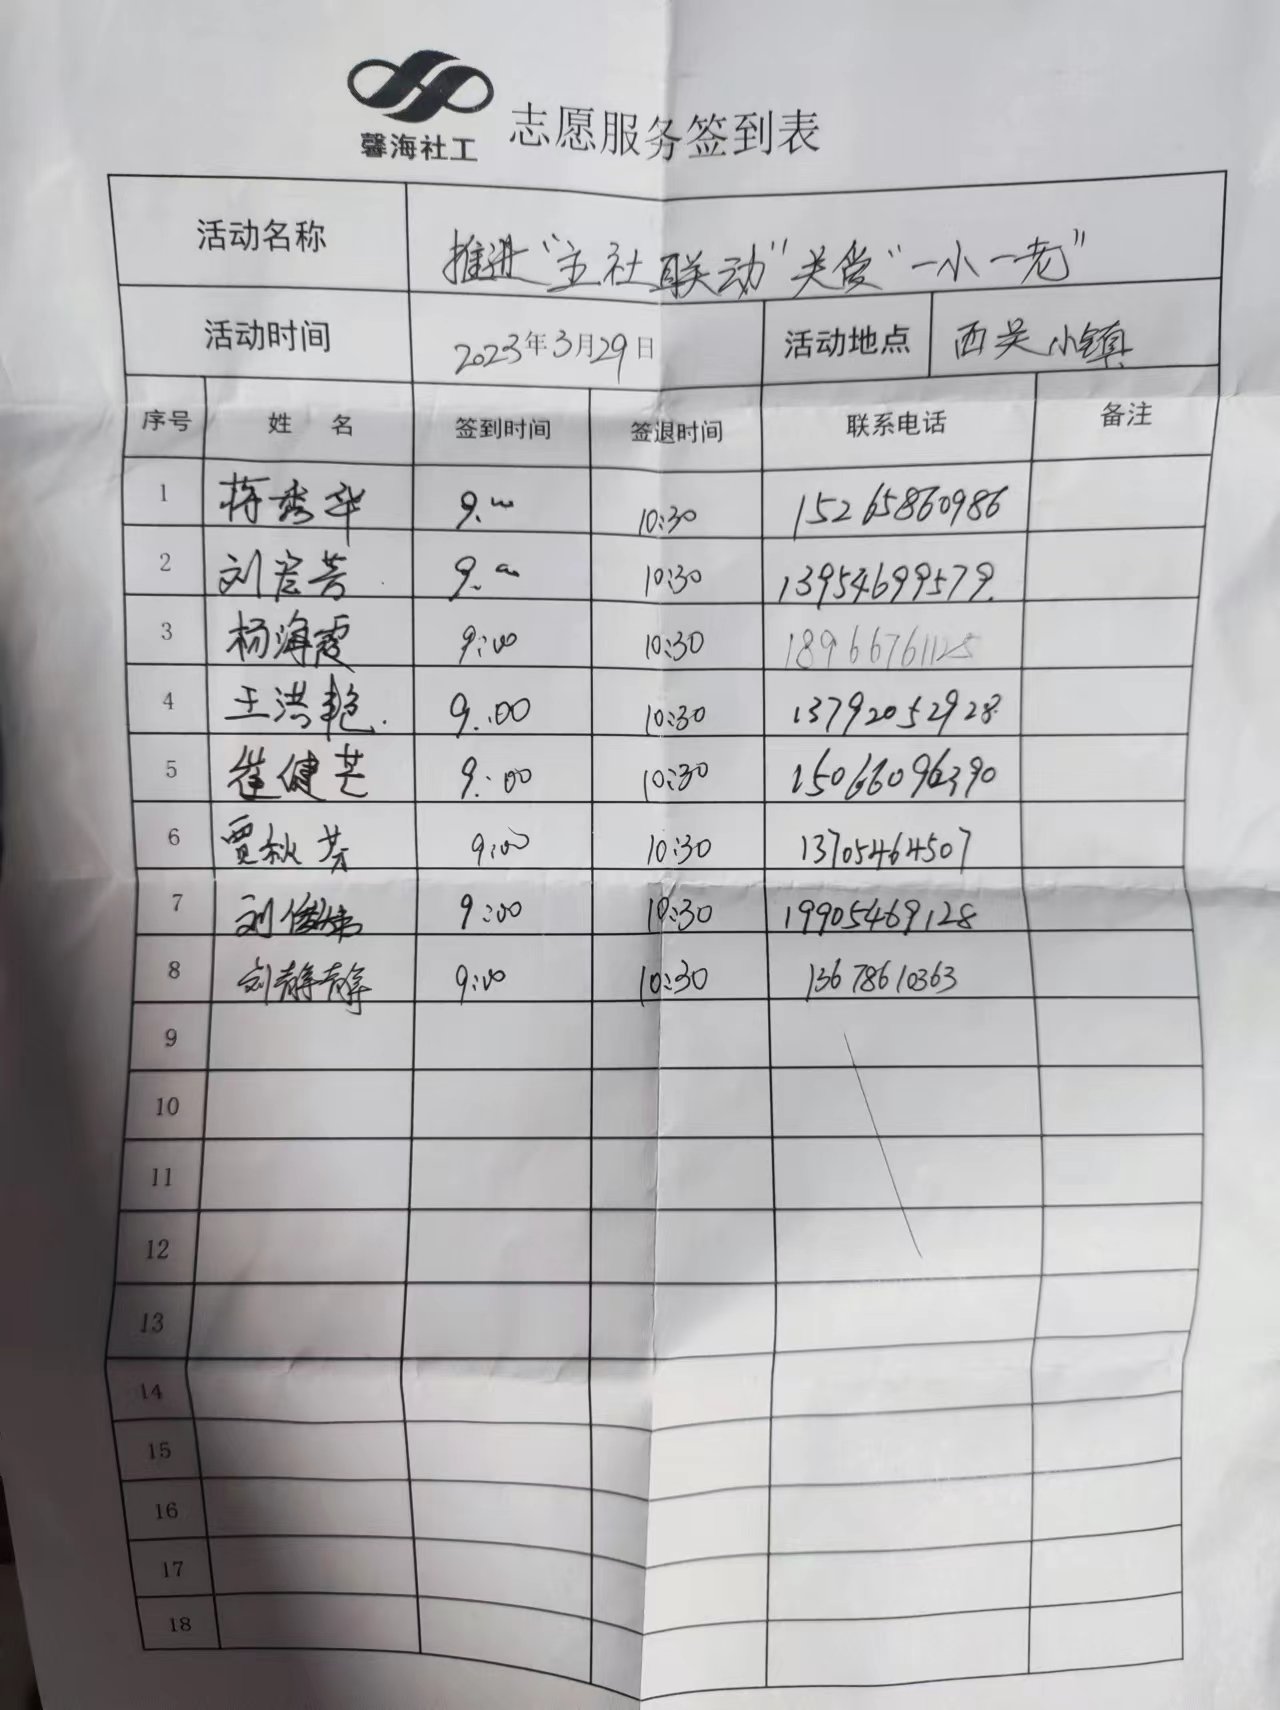 馨海社工 志愿服务签到表
活动名称 推进“主社联动”关爱“一小一老”
活动时间 2023年3月29日 活动地点 西吴小镇
序号 姓 名 签到时间 签退时间 联系电话 备注
1 蒋秀华 9:00 10:30 15265860986
2 刘彦芳 9:00 10:30 13954699579
3 杨海霞 9:00 10:30 18966761125
4 王洪艳 9:00 10:30 13792052928
5 崔健芸 9:00 10:30 15066096390
6 贾秋芬 9:00 10:30 13705464507
7 刘俊 9:00 10:30 19905469128
8 刘静静 9:00 10:30 13678610363
9
10
11
12
13
14
15
16
17
18